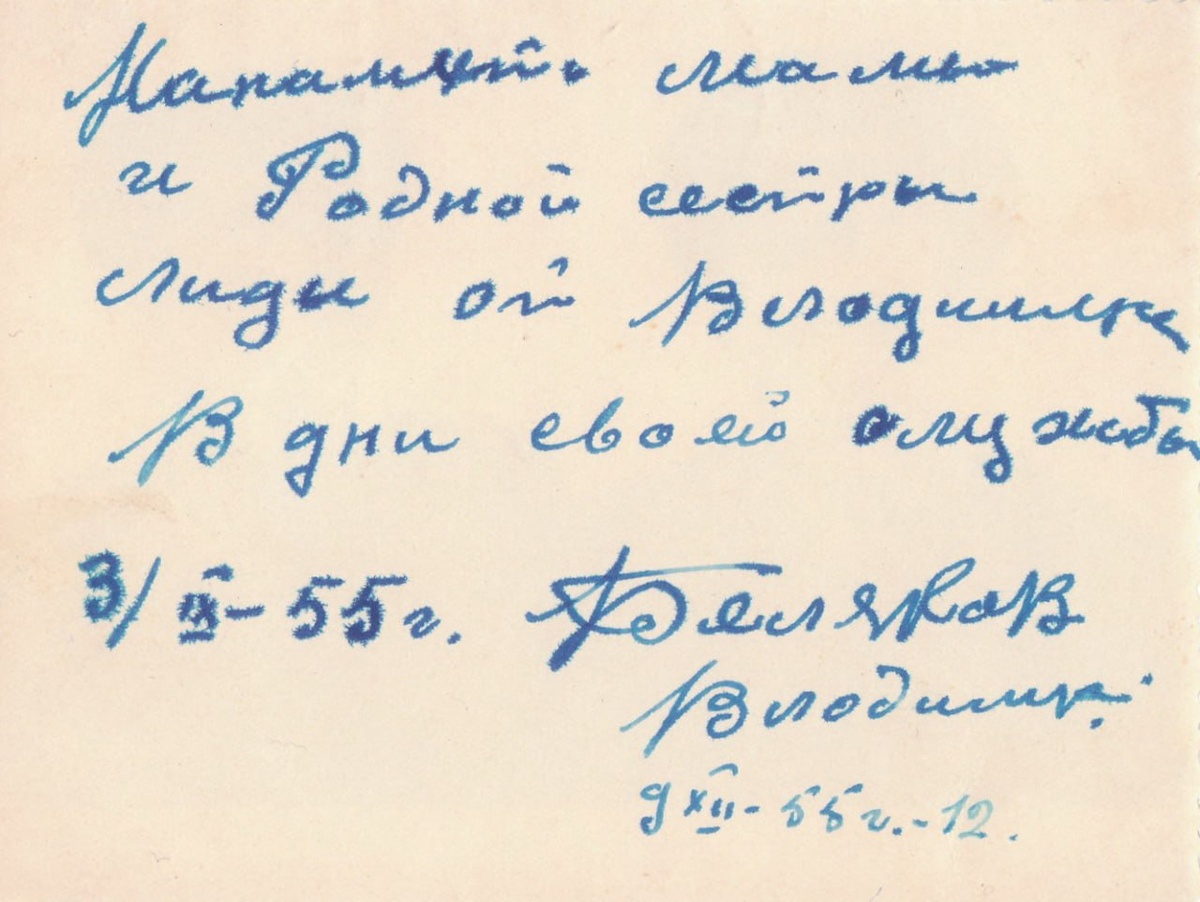 Напамять мамы
и Родной сестры
Лиды от Володимира
В дни своей службы
3/IX-55г. Беляков
Володимир.
9 XII-55г.-12.